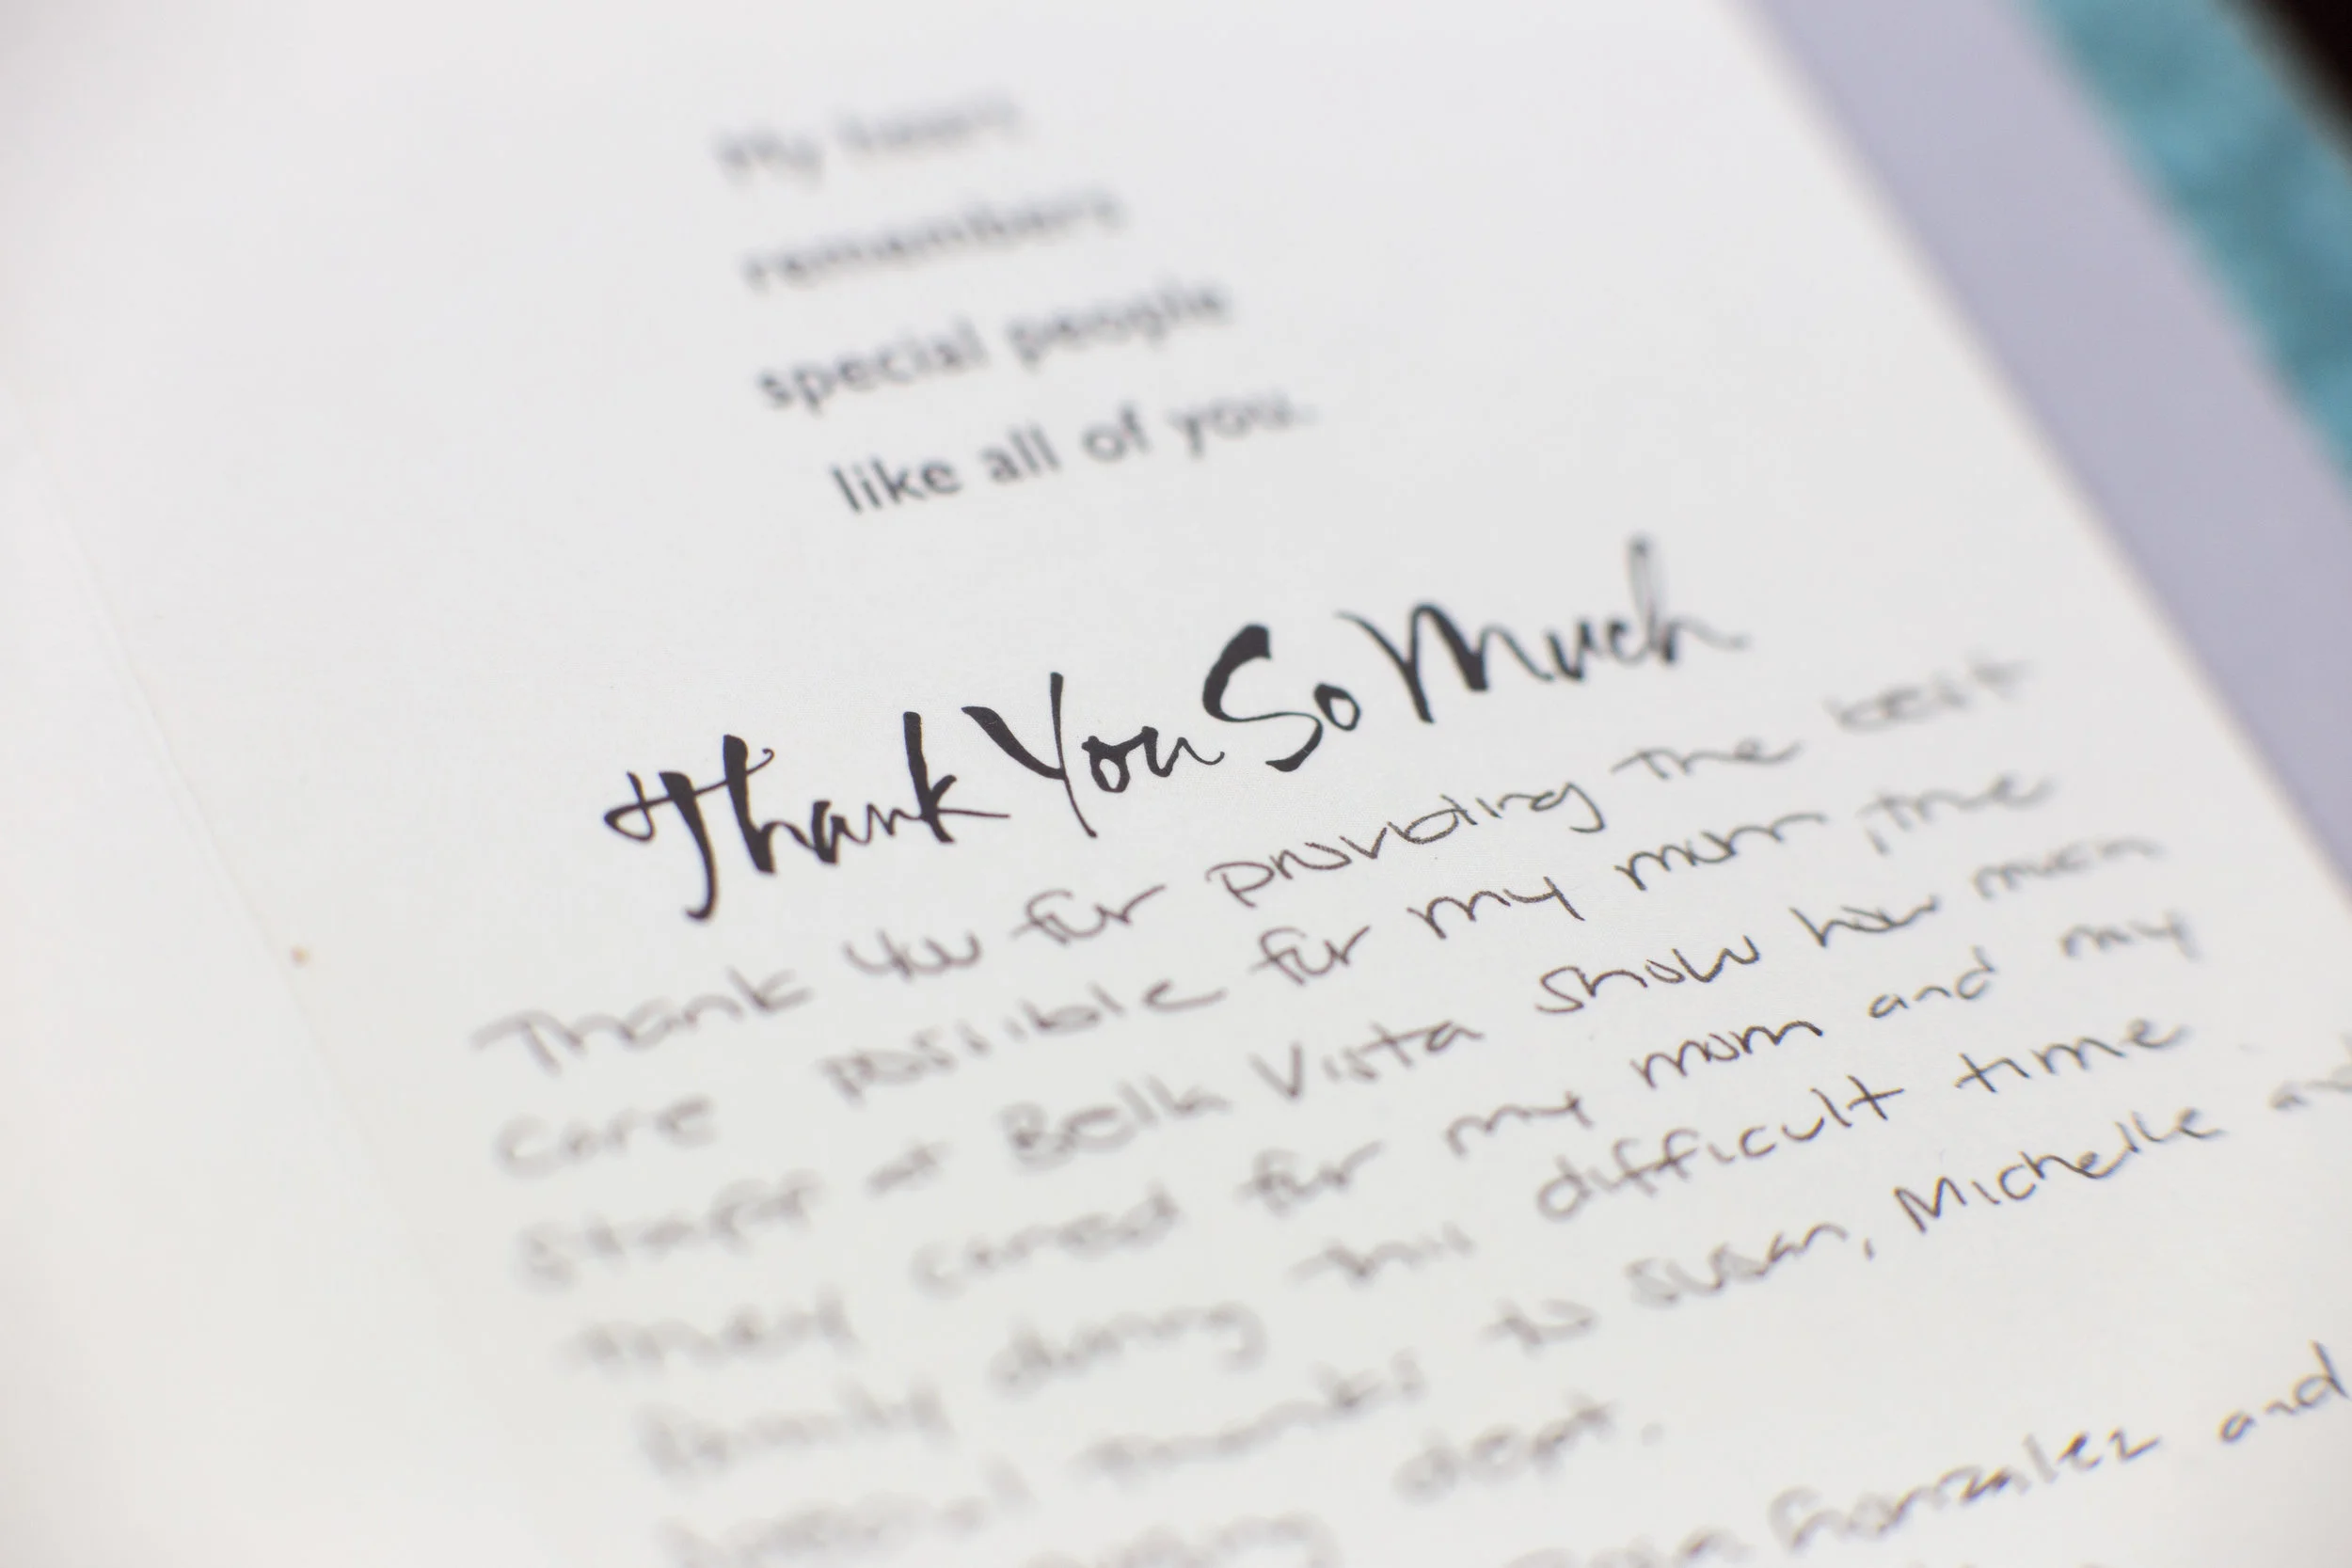 My heart
remembers
special people
like all of you.
Thank You So Much
Thank you for providing the best
care possible for my mom, the
staff at Bella Vista show how much
they cared for my mom and my
family during this difficult time
special thanks to Susan, Michelle and
dept.
Gonzalez and